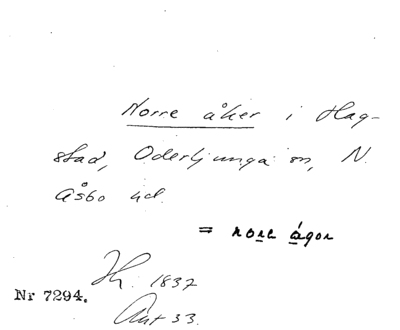 Norre åker i Hag-
stad, Oderljunga sn, N.
Åsbo hd.
= nore ágor
1837
Nr 7294.
Ant 33.